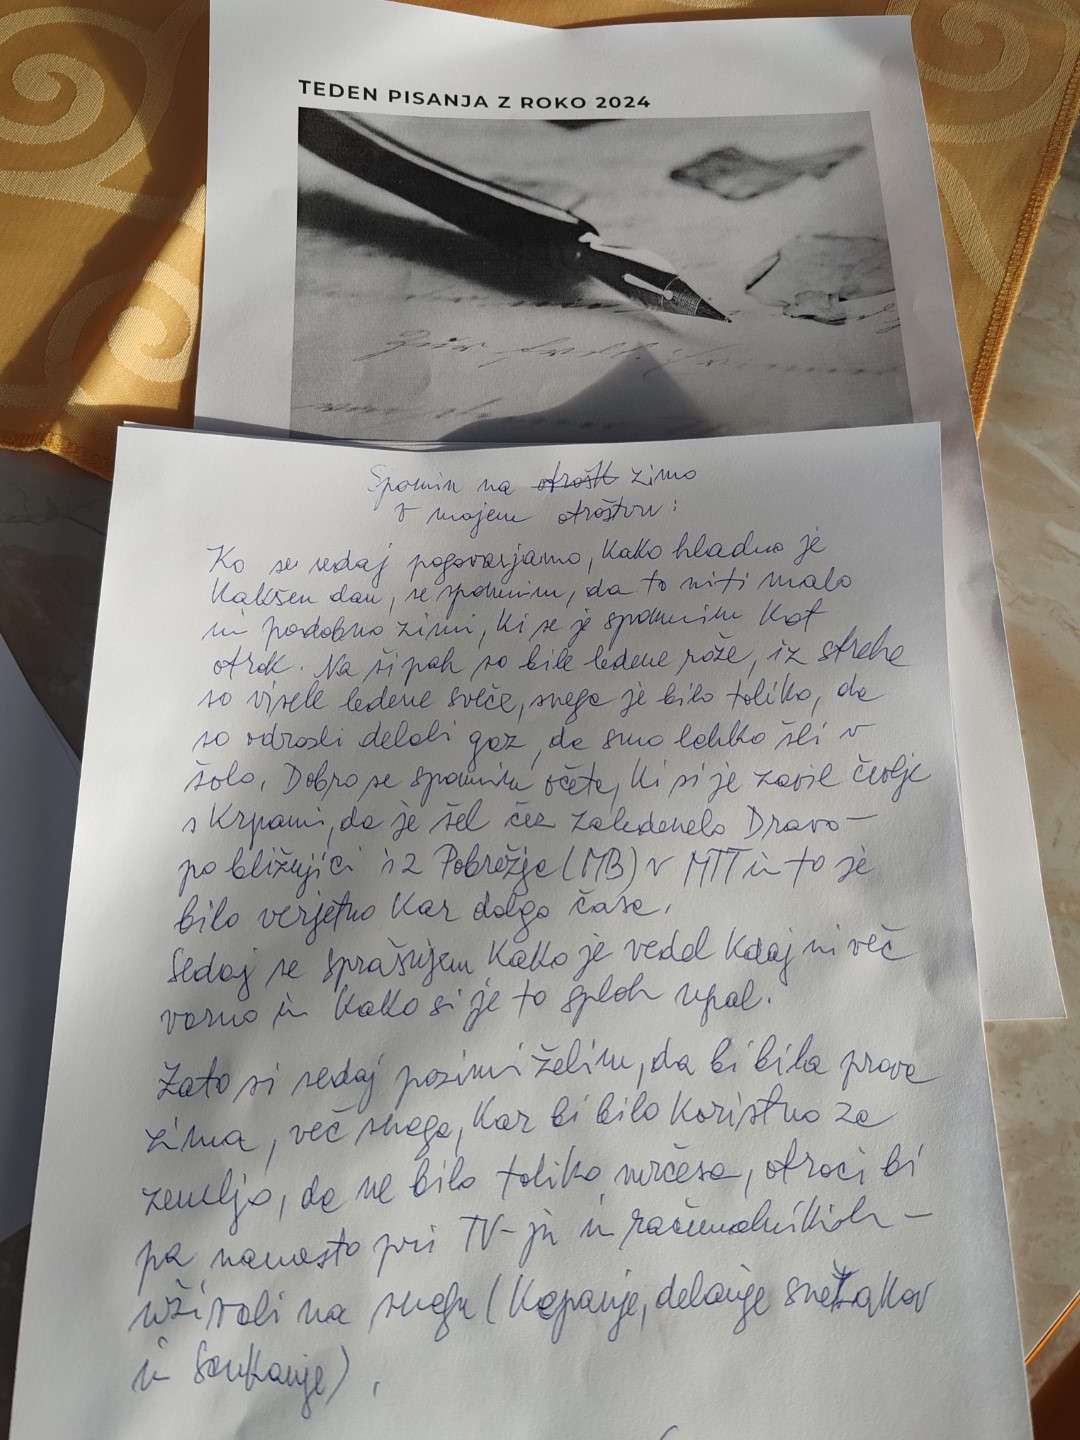 TEDEN PISANJA Z ROKO 2024
Spomin na otrošk zimo
v mojem otroštvu:
Ko se sedaj pogovarjamo, kako hladno je
kakšen dan, se spomnim, da to niti malo
ni podobno zimi, ki se je spomnim kot
otrok. Na šipah so bile ledene rože, iz strehe
so visele ledene sveče, snega je bilo toliko, da
so odrasli delali gaz, da smo lahko šli v
šolo. Dobro se spomnim očeta, ki si je zavil čevlje
s krpami, da je šel čez zaledenelo Dravo –
po bližnjici iz Pobrežja (MB) v MTT in to je
bilo verjetno kar dolgo časa.
Sedaj se sprašujem kako je vedel kdaj ni več
varno in kako si je to sploh upal.
Zato si sedaj pozimi želim, da bi bila prava
zima, več snega, kar bi bilo koristno za
zemljo, da ne bilo toliko mrčesa, otroci bi
pa namesto pri TV-ju in računalnikih –
uživali na snegu (kepanje, delanje snežakov
in sankanje).